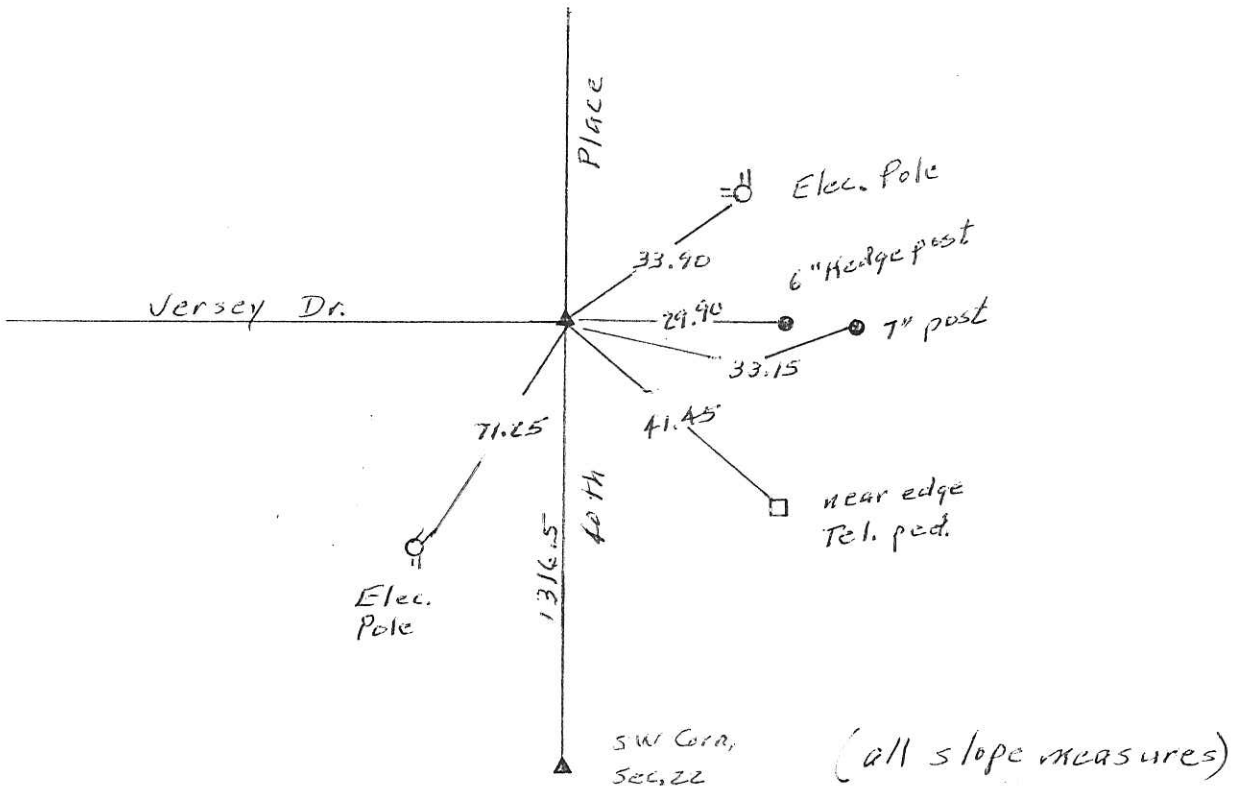 Place
Elec. Pole
33.90
6" Hedge post
Versey Dr.
29.90
7" post
33.15
71.25
41.45
40th
near edge
Tel. ped.
1316.5
Elec.
Pole
SW Corn,
Sec, 22
(all slope measures)